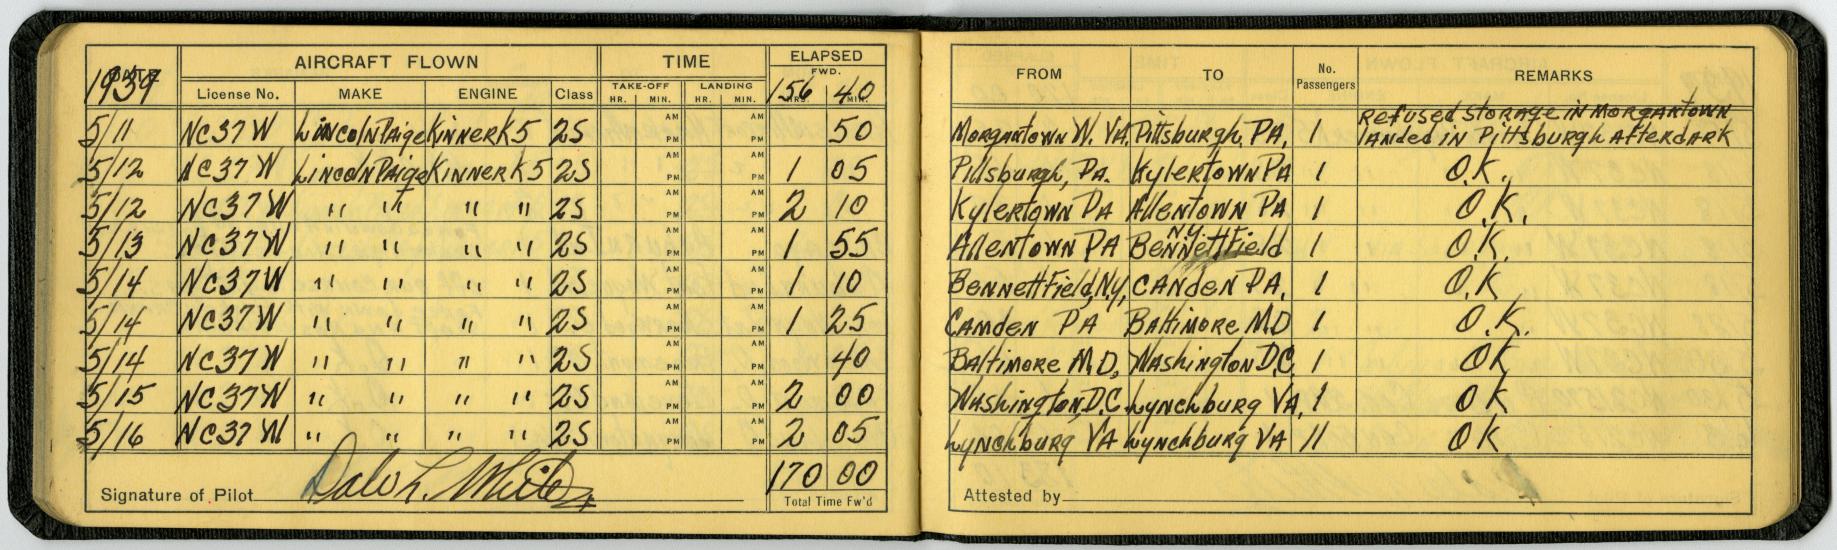 1939 DATE AIRCRAFT FLOWN TIME ELAPSED
FWD.
License No. MAKE ENGINE Class TAKE-OFF HR. MIN. LANDING HR. MIN. 156 HRS. 40 MIN.
5/11 NC37W Lincoln Paige Kinner K5 2S AM PM AM PM 50
5/12 NC37W Lincoln Paige Kinner K5 2S AM PM AM PM 1 05
5/12 NC37W " " " " 2S AM PM AM PM 2 10
5/13 NC37W " " " " 2S AM PM AM PM 1 55
5/14 NC37W " " " " 2S AM PM AM PM 1 10
5/14 NC37W " " " " 2S AM PM AM PM 1 25
5/14 NC37W " " " " 2S AM PM AM PM 40
5/15 NC37W " " " " 2S AM PM AM PM 2 00
5/16 NC37W " " " " 2S AM PM AM PM 2 05
170 00
Signature of Pilot Dale L. White
Total Time Fw'd
FROM TO No. Passengers REMARKS
Refused storage in Morgantown
Morgantown W. VA. Pittsburgh, PA. 1 landed in Pittsburgh after dark
Pittsburgh, PA. Kylertown PA 1 O.K.
Kylertown PA Allentown PA 1 O.K.
N.Y.
Allentown PA Bennett Field 1 O.K.
Bennett Field, N.Y. Camden PA. 1 O.K
Camden PA Baltimore MD 1 O.K.
Baltimore MD, Washington D.C. 1 OK
Washington, D.C. Lynchburg VA. 1 OK
Lynchburg VA Lynchburg VA 11 OK
Attested by